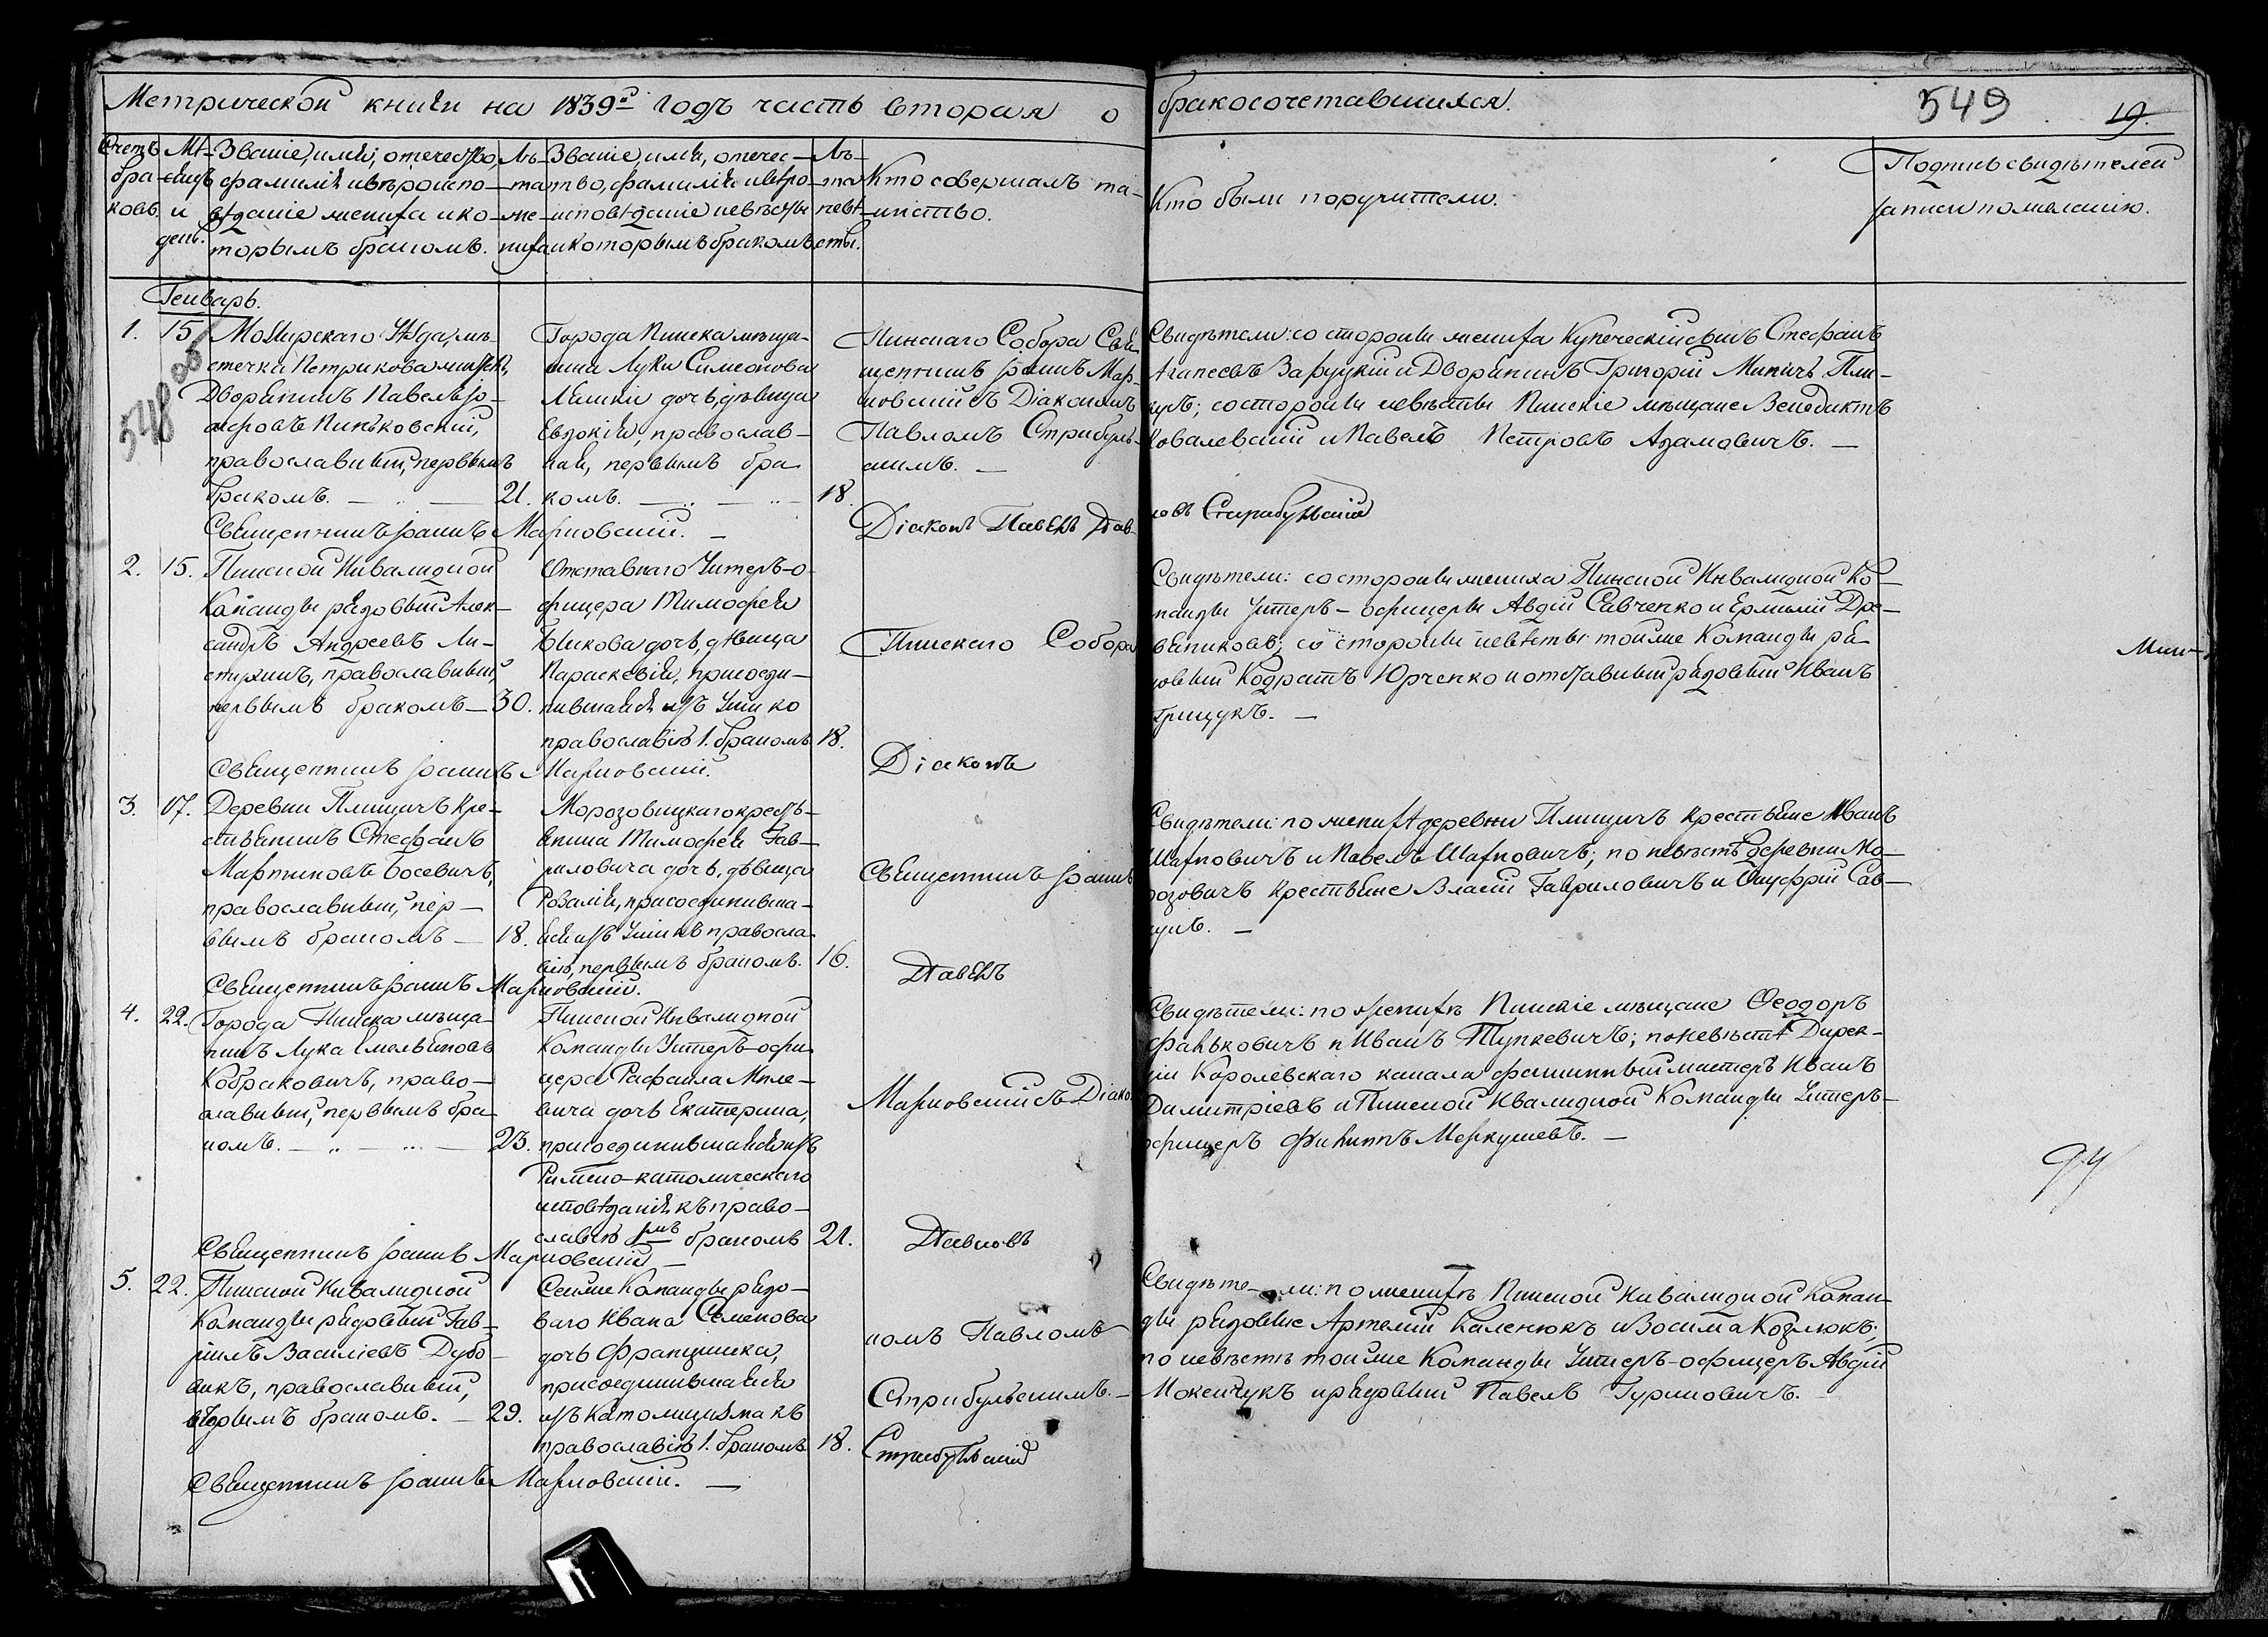 Метрической книги на 1839й годъ часть вторая о бракосочетавшихся.
549
19.
Счетъ браковъ.
Мѣсяцъ и день.
Званіе, имя, отечество, фамилія и вѣроисповѣданіе жениха и которымъ бракомъ.
Лѣта жениха
Званіе, имя, отечество, фамилія и вѣроисповѣданіе невѣсты и которымъ бракомъ
Лѣта невѣсты.
Кто совершалъ таинство.
Кто были поручители.
Подпись свидѣтелей записи по желанію.
Генварь.
1. 15
548 об
Мозырскаго Уѣзда, мѣ-
стечка Петрикова
Дворянинъ Павелъ
Пинько́вскій,
православный, первымъ
бракомъ. — 21.
Города Пинска мѣща-
нина Луки Симеонова
дочь, дѣвица
Евдокія, православ-
ная, первымъ бра-
комъ. — 18.
Пинскаго Собора Свя-
щенникъ Іоаннъ Мар-
новскій съ Діакономъ
Павломъ Стрибуль-
скимъ. —
Свидѣтели: со стороны жениха Купеческій сынъ Стефанъ
Агапеевъ Заруцкій и Дворянинъ Григорій
со стороны невѣсты Пинскіе мѣщане Венедиктъ
Ковалевскій и Павелъ Петровъ Адамовичъ. —
Священникъ Іоаннъ Марновскій. —
Діаконъ Павелъ Пав-
ловъ Стрибульскій
2. 15.
Пинской Инвалидной
Команды рядовый Алек-
сандръ Андреевъ Ли-
стухинъ, православный,
первымъ бракомъ — 30.
Отставнаго Унтеръ-о-
фицера Тимофея
Быкова дочь, дѣвица
Параскевія, присоеди-
нившаяся изъ Уніи ко
православію 1. бракомъ 18.
Пинскаго Собора
Свидѣтели: со стороны жениха Пинской Инвалидной Ко-
манды Унтеръ-офицеры Авдій Савченко и Ермолій Дре-
вяниковъ; со стороны невѣсты тойже Команды ря-
довый Кодратъ Юрченко и отставный рядовый Иванъ
Грицукъ. —
Мин-
Священникъ Іоаннъ Марновскій.
Діаконъ
3. 17.
Деревни Плещичъ кре-
стьянинъ Стефанъ
Мартиновъ Босевичъ,
православный, пер-
вымъ бракомъ — 18.
Морозовицкаго кресть-
янина Тимофея Гав-
риловича дочь, дѣвица
Розалія, присоединивша-
яся изъ Уніи къ правосла-
вію, первымъ бракомъ. 16.
Священникъ Іоаннъ
Свидѣтели: по женихѣ деревни Плещичъ крестьяне Иванъ
Шахновичъ и Павелъ Шахновичъ; по невѣстѣ деревни Мо-
розовичъ крестьяне Власій Гавриловичъ и Онуфрій Сав-
Священникъ Іоаннъ Марновскій.
Павелъ
4. 22.
Города Пинска мѣща-
нинъ Лука Емельяновъ
Кобраковичъ, право-
славный, первымъ бра-
комъ. — 23.
Пинской Инвалидной
Команды Унтеръ-офи-
цера Рафаила Миле-
вича дочь Екатерина,
присоединившаяся изъ
Римско-католическаго
исповѣданія къ право-
славію 1мъ бракомъ 21.
Марновскій съ Діако-
Свидѣтели: по женихѣ Пинскіе мѣщане Ѳеодоръ
Фаньковичъ и Иванъ Тупкевичъ; по невѣстѣ Дирек-
ціи Королевскаго канала фашинный мастеръ Иванъ
Димитріевъ и Пинской Инвалидной Команды Унтеръ-
офицеръ Филиппъ Меркушевъ. —
Священникъ Іоаннъ Марновскій —
Павловъ
5. 22.
Пинской Инвалидной
Команды рядовый Гав-
ріилъ Василіевъ Дубо-
викъ, православный,
вторымъ бракомъ. — 29.
Сейже Команды рядо-
ваго Ивана Семенова
дочь Францишка,
присоединившаяся
изъ Католицизма къ
православію 1. бракомъ 18.
номъ Павломъ
Стрибульскимъ. —
Свидѣтели: по женихѣ Пинской Инвалидной Коман-
ды рядовые Артемій Каленюкъ и Зосима Козлюкъ;
по невѣстѣ тойже Команды Унтеръ-офицеръ Авдій
Мокейчукъ и рядовый Павелъ Гуриновичъ.
Священникъ Іоаннъ Марновскій. —
Стрибульскій